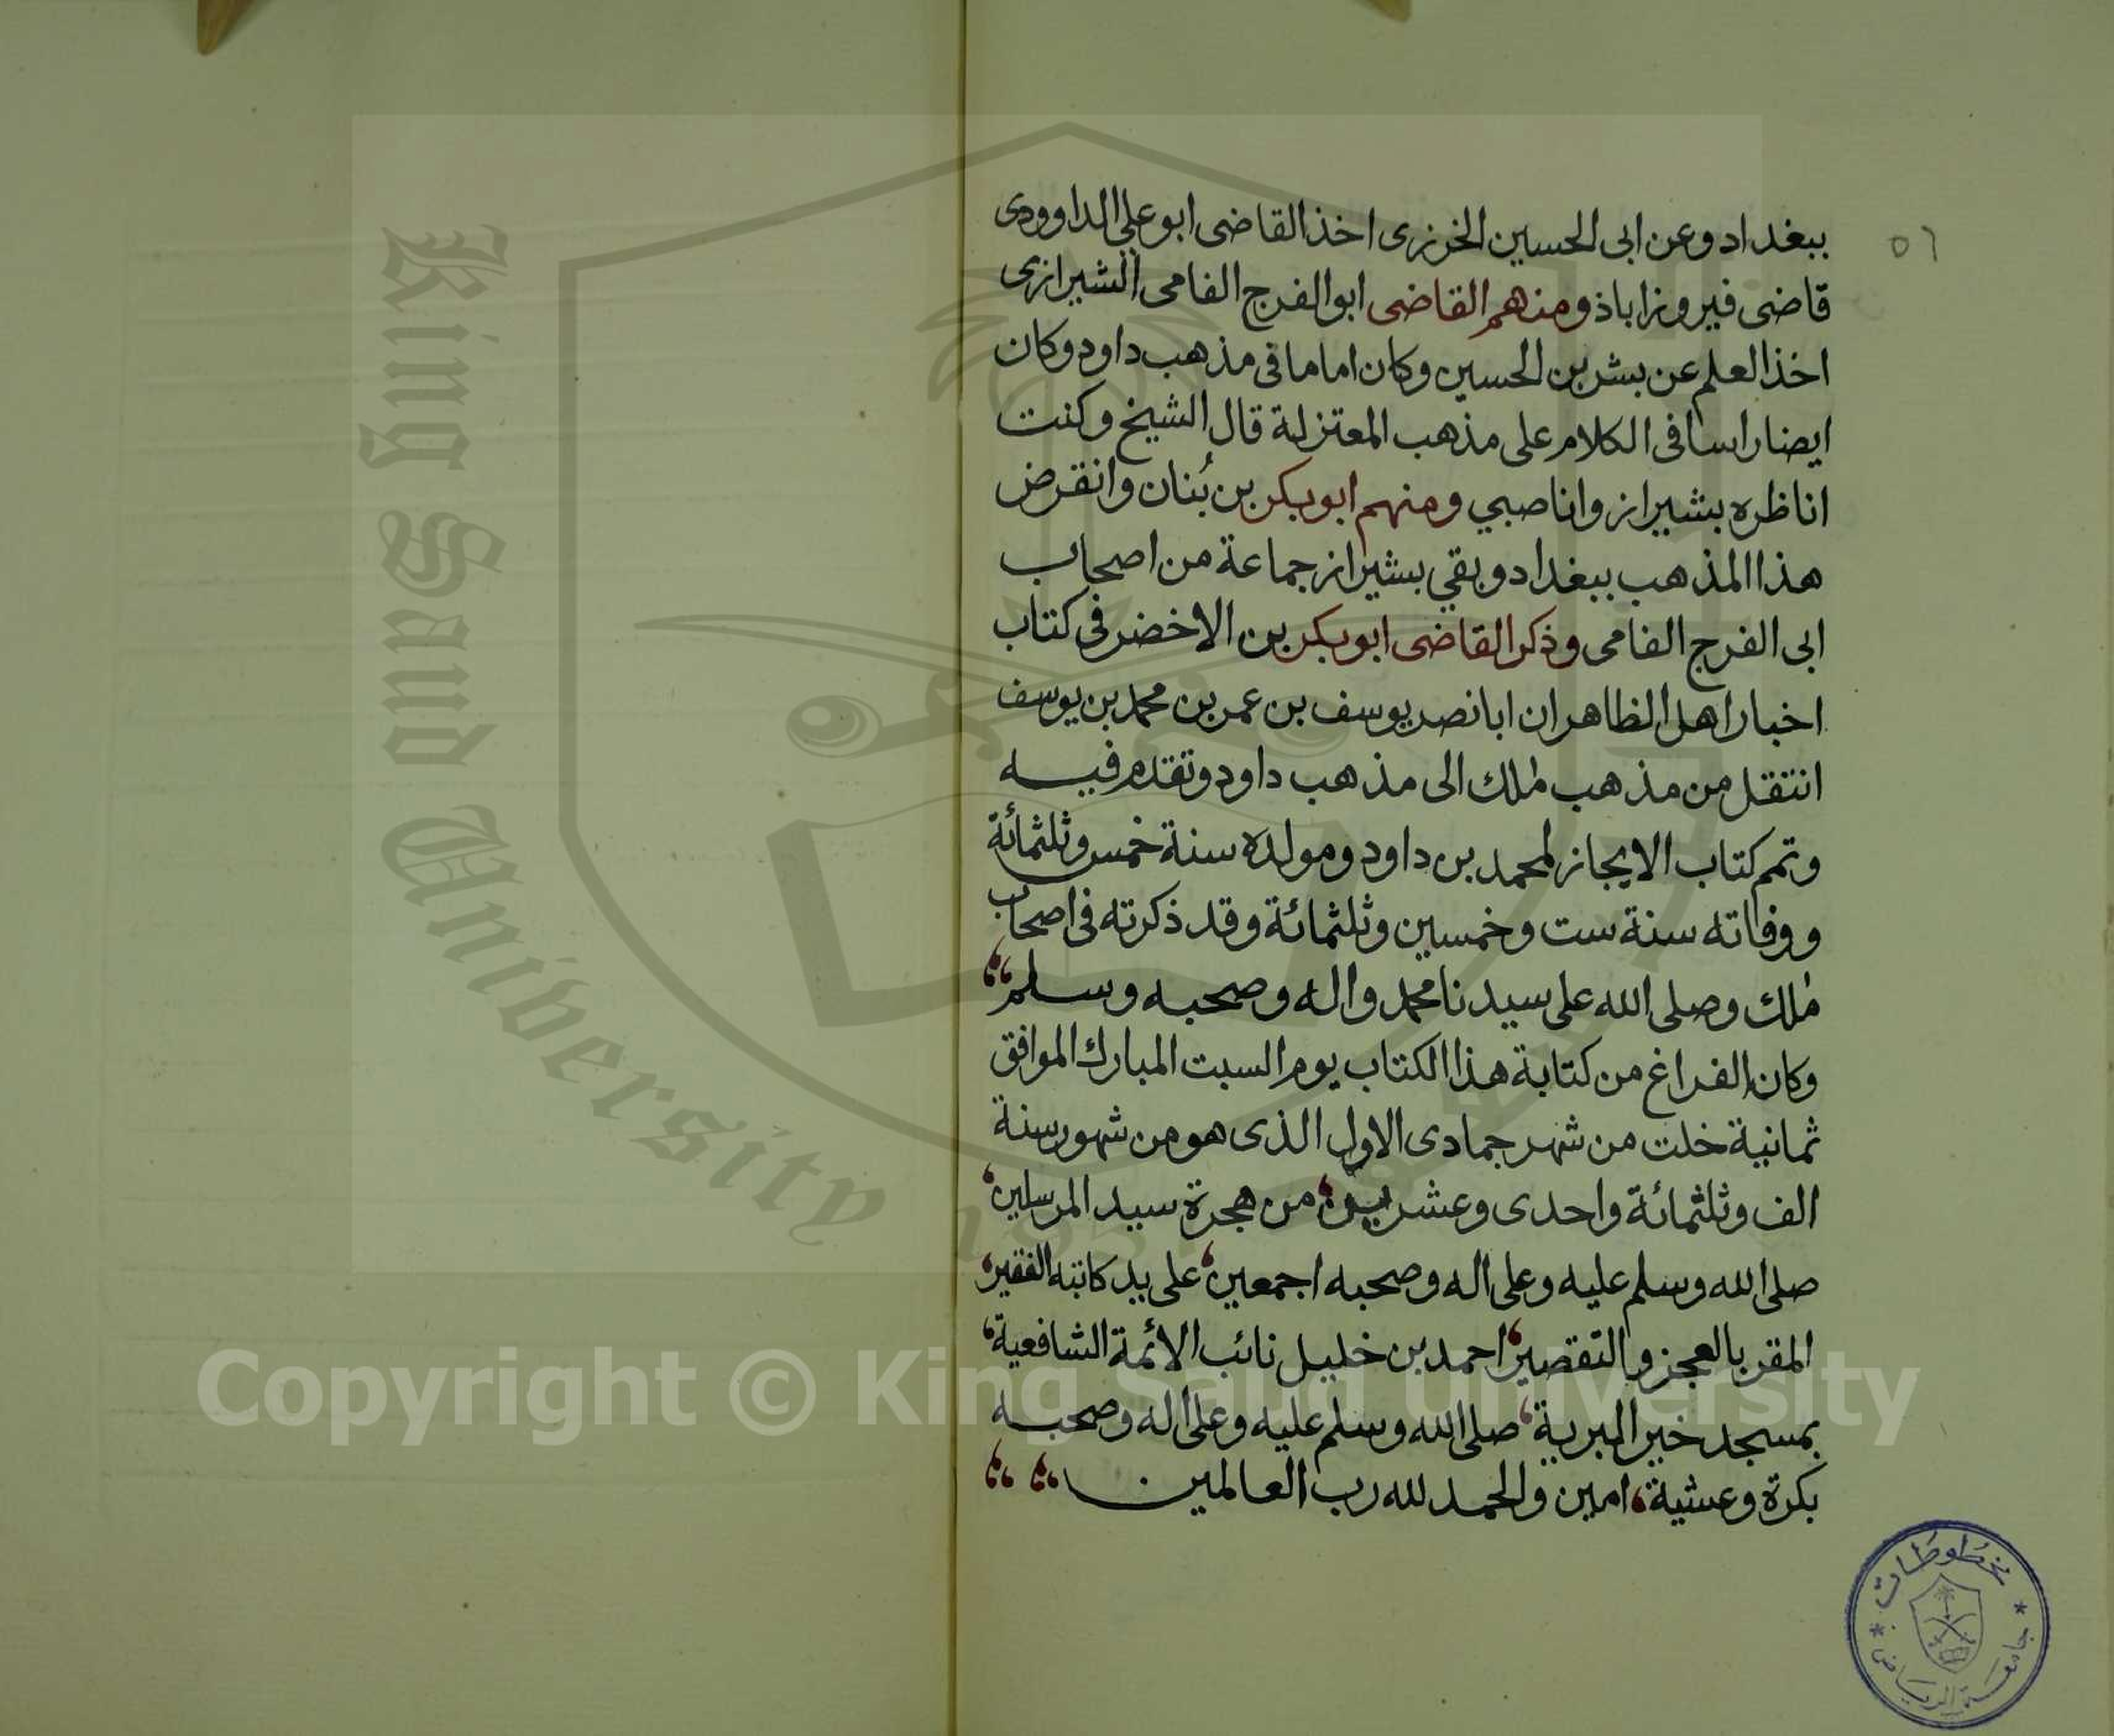 ٥٦
ببغداد وعن ابى الحسين الخرزى اخذ القاضى ابو على الداوودى
قاضى فيروزاباذ ومنهم القاضى ابو الفرج الفامى الشيرازى
اخذ العلم عن بشر بن الحسين وكان اماما فى مذهب داود وكان
ايضا راسا فى الكلام على مذهب المعتزلة قال الشيخ وكنت
اناظره بشيراز وانا صبي ومنهم ابو بكر بن بُنان وانقرض
هذا المذهب ببغداد وبقي بشيراز جماعة من اصحاب
ابى الفرج الفامى وذكر القاضى ابو بكر بن الاخضر فى كتاب
اخبار اهل الظاهر ان ابا نصر يوسف بن عمر بن محمد بن يوسف
انتقل من مذهب ملك الى مذهب داود وتقدم فيه
وتمم كتاب الايجاز لمحمد بن داود ومولده سنة خمس وثلثمائة
ووفاته سنة ست وخمسين وثلثمائة وقد ذكرته فى اصحاب
ملك وصلى الله على سيدنا محمد واله وصحبه وسلم
وكان الفراغ من كتابة هذا الكتاب يوم السبت المبارك الموافق
ثمانية خلت من شهر جمادى الاول الذى هو من شهور سنة
الف وثلثمائة واحدى وعشرين، من هجرة سيد المرسلين،
صلى الله وسلم عليه وعلى اله وصحبه اجمعين، على يد كاتبه الفقير،
المقر بالعجز وبالتقصير، احمد بن خليل نائب الائمة الشافعية،
بمسجد خير البرية، صلى الله وسلم عليه وعلى اله وصحبه
بكرة وعشية، امين والحمد لله رب العالمين
مخطوطات
جامعة الرياض
King Saud University
1957
Copyright © King Saud University